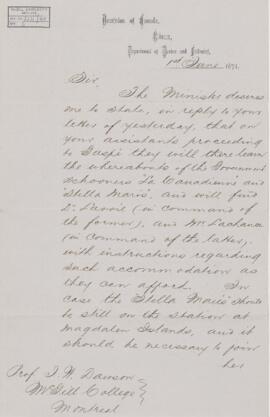 Dominion of Canada,
Ottawa,
Department of Marine and Fisheries,
1st June 1871.
Sir,
The Minister desires
me to state, in reply to your
letter of yesterday, that on
your assistants proceeding
to Gaspé they will there learn
the whereabouts of the Government
schooners "La Canadienne" and
"Stella Maris", and will find
Dr Lavoie (in command of
the former), and Mr Lachance
(in command of the latter),
with instructions regarding
such accommodation as
they can afford. In
case the "Stella Maris" should
be still on the station at
Magdalen Islands, and it
should be necessary to join
her
Prof J. W. Dawson
McGill College
Montreal